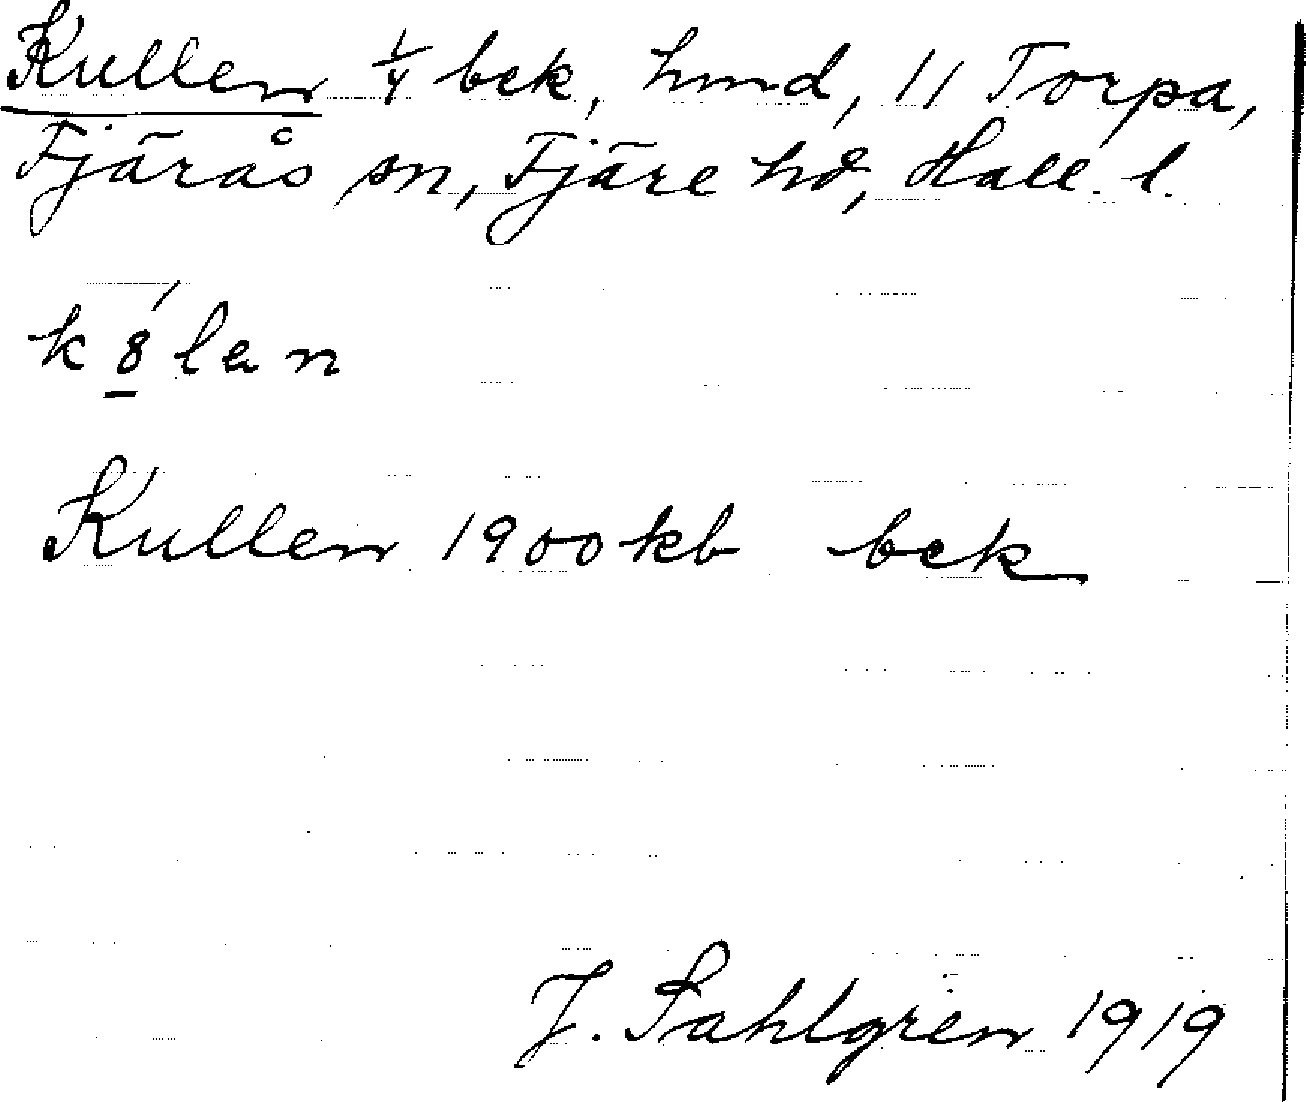 Kullen 1/4 bek, hmd, 11 Torpa,
Fjärås sn, Fjäre hd, Hall. l.
k 8́ l a n
Kullen 1900 kb bek
J. Sahlgren 1919